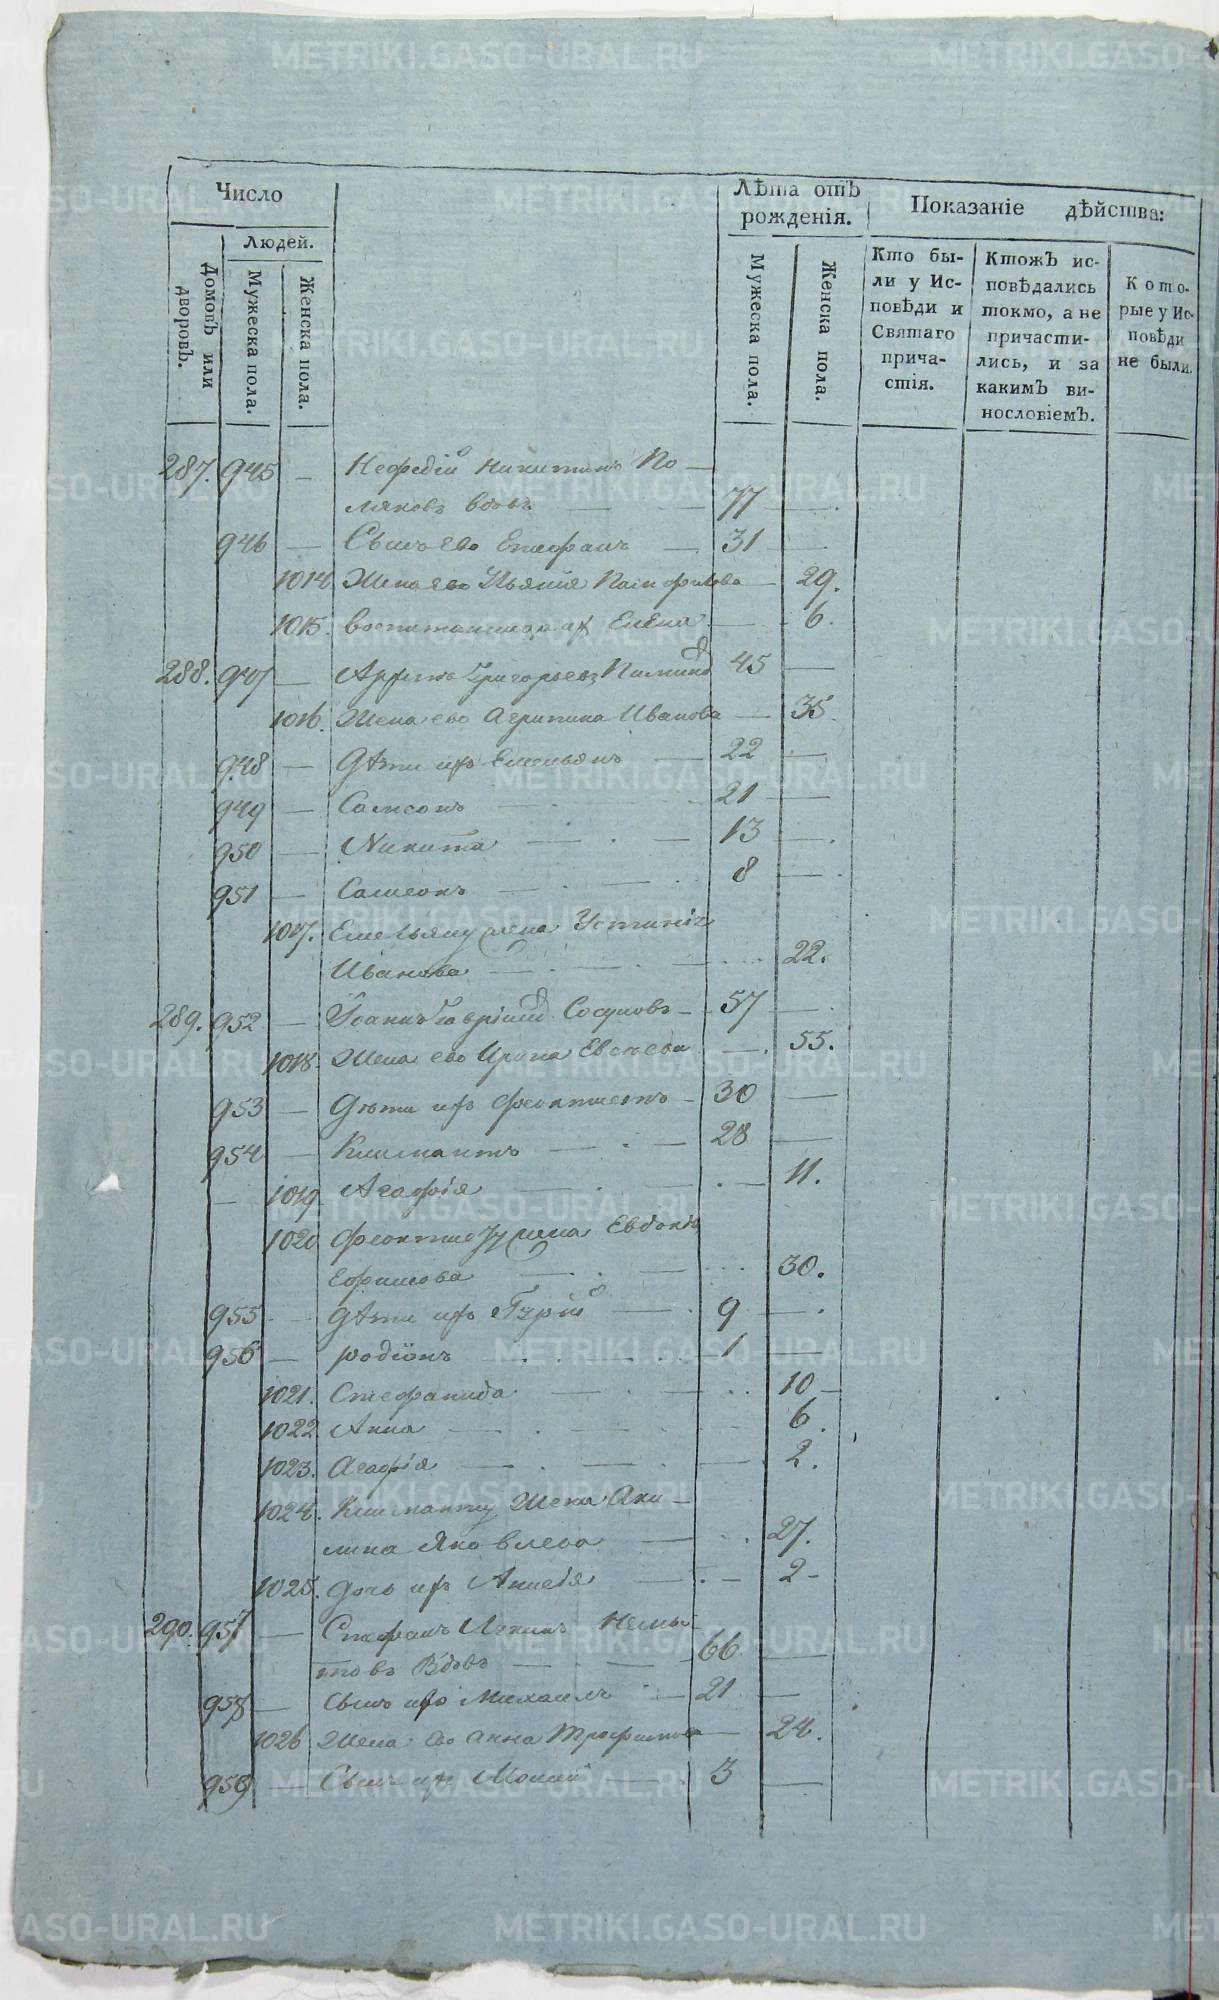 METRIKI.GASO-URAL.RU
Число
Лѣта отъ рожденія.
Показаніе дѣйства:
Людей.
Домовъ или дворовъ.
Мужеска пола.
Женска пола.
Мужеска пола.
Женска пола.
Кто были у Исповѣди и Святаго причастія.
Ктожъ исповѣдались токмо, а не причастились, и за какимъ винословіемъ.
Которые у Исповѣди не были.
287. 945 — Никитинъ По—
ляковъ вдовъ — 77 —
946 — Сынъ его Стефанъ — 31 —
1014 Жена его Памфилова — 29.
1015. воспитанница их Елена — 6.
288. 947 — Григорьевъ 45 —
1016. Жена его Агрипина Иванова — 35.
948 — Дѣти ихъ Емельянъ — 22 —
949 — Самсонъ — 21 —
950 — Никита — 13 —
951 — Самсонъ — 8 —
1017. Емельяну жена Устинія
Иванова — 22.
289. 952 — Іоаннъ Гавріиловъ Сосуновъ — 57 —
1018. Жена его Ирина Евсѣева — 55.
953 — Дѣти ихъ Феоктистъ — 30 —
954 — Климантъ — 28 —
— 1019 Агафія — 11.
1020 Феоктисту жена Евдокія
Ефимова — 30.
955 — Дѣти ихъ Гурій — 9 —
956 — родіонъ — 1 —
1021. Стефанида — 10 —
1022 Анна — 6.
1023. Агафія — 2.
1024. Климанту Жена Аку—
лина Яковлева — 27.
1025. Дочь ихъ — 2 —
290. 957 — Стефанъ
товъ Вдовъ — 66 —
958 — Сынъ его Михаилъ — 21 —
1026 Жена его Анна Трофимова — 24.
959 — Сынъ ихъ — 3 —